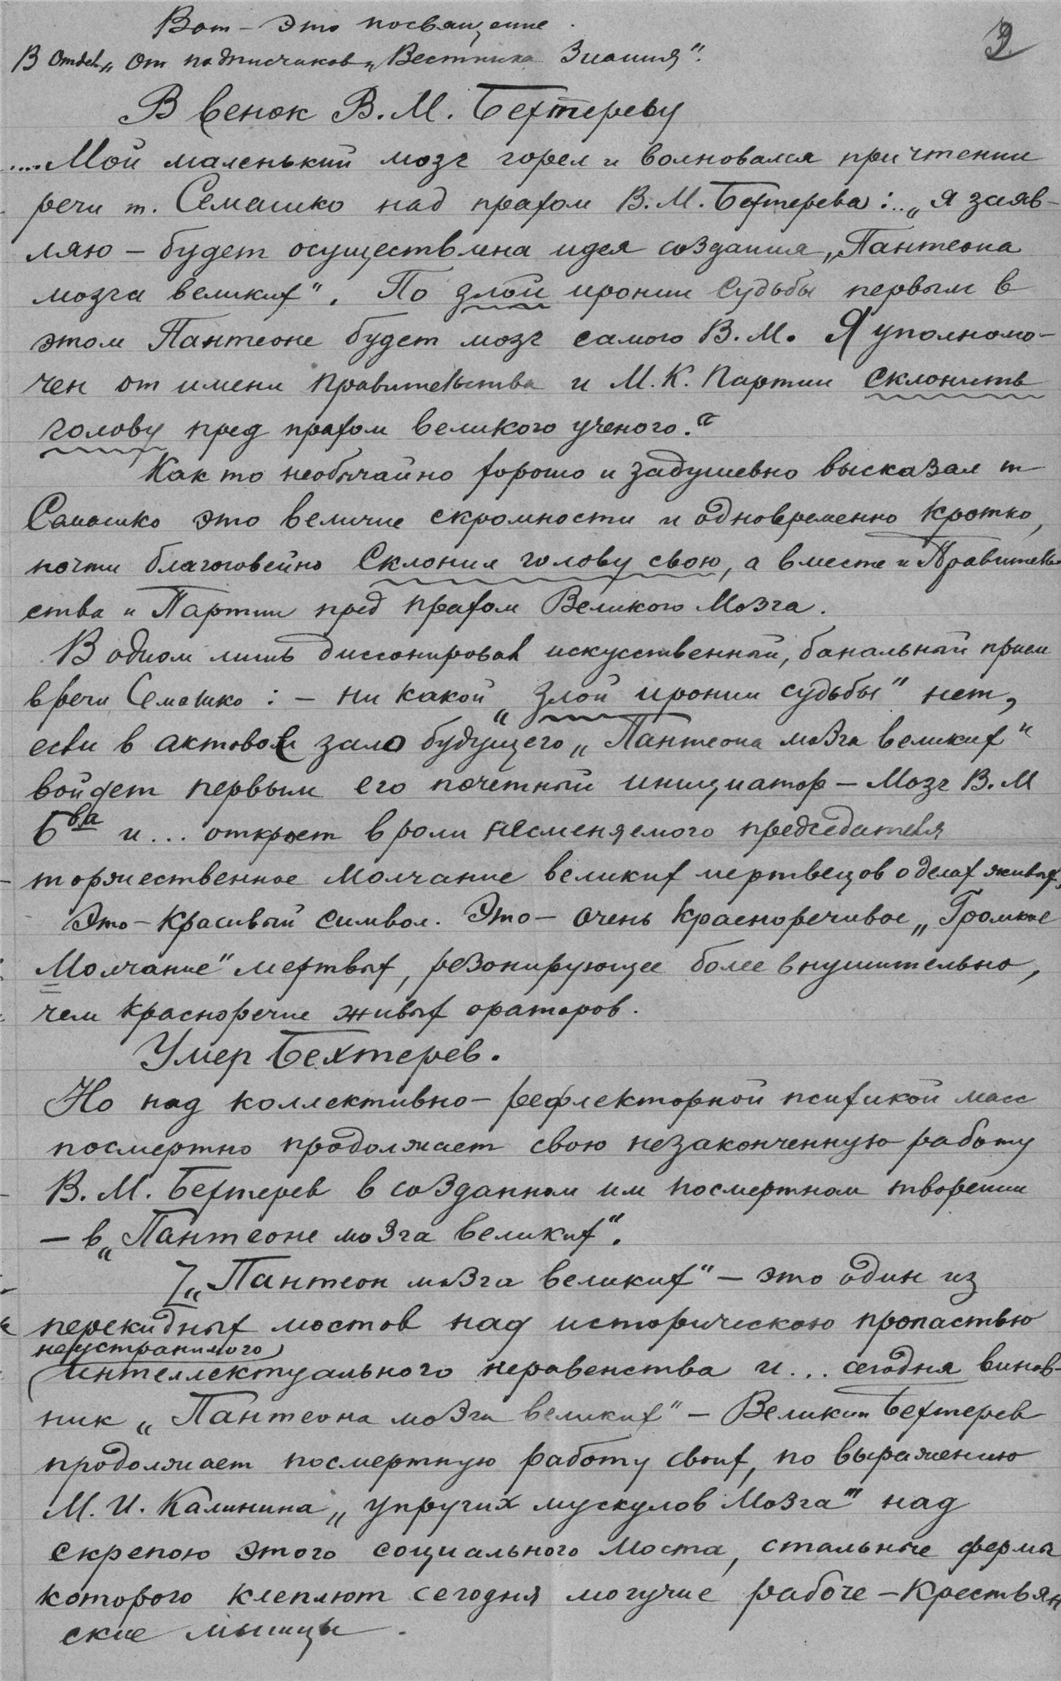 Вот – это посвящение.
2
В Отдел „От подписчиков „Вестника Знания".
В венок В. М. Бехтереву
.... Мой маленький мозг горел и волновался при чтении
речи т. Семашко над прахом В. М. Бехтерева: .. „я заяв-
ляю – будет осуществлена идея создания „Пантеона
мозга великих". По злой иронии судьбы первым в
этом Пантеоне будет мозг самого В. М. Я уполномо-
чен от имени Правительства и М. К. Партии склонить
голову пред прахом великого ученого."
Как то необычайно хорошо и задушевно высказал т
Семашко это величие скромности и одновременно кротко,
почти благоговейно склонил голову свою, а вместе и Правитель-
ства и Партии пред прахом Великого Мозга.
В одном лишь диссонировал искусственный, банальный прием
в речи Семашко: – ни какой „злой иронии судьбы" нет,
если в актовом зале будущего „Пантеона мозга великих"
войдет первым его почетный инициатор – Мозг В. М
Б-ва и ... откроет в роли несменяемого председателя
торжественное молчание великих мертвецов о делах живых.
Это – красивый символ. Это – очень красноречивое „Громкое
Молчание" мертвых, резонирующее более внушительно,
чем красноречие живых ораторов.
Умер Бехтерев.
Но над коллективно – рефлекторной психикой масс
посмертно продолжает свою незаконченную работу
В. М. Бехтерев в созданном им посмертном творении
– в „Пантеоне мозга великих".
„Пантеон мозга великих" – это один из
перекидных мостов над историческою пропастью
неустранимого
интеллектуального неравенства и ... сегодня винов-
ник „Пантеона мозга великих" – Великий Бехтерев
продолжает посмертную работу своих, по выражению
М. И. Калинина „упругих мускулов Мозга" над
скрепою этого социального моста, стальные фермы
которого клеплют сегодня могучие рабоче – крестьян
ские мышцы.